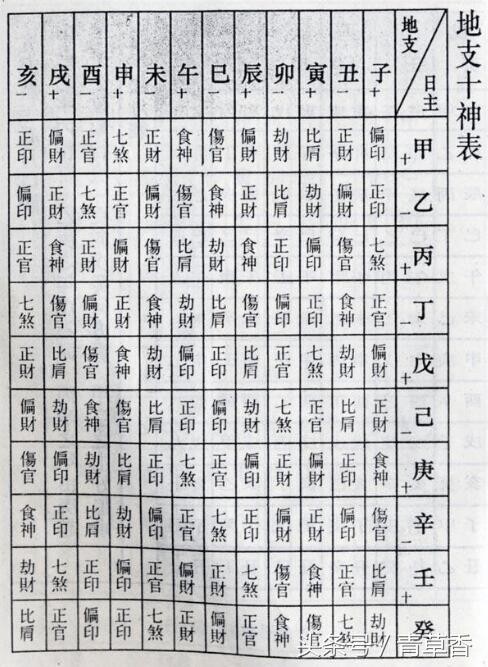 地支十神表
地支 日主 子+ 丑一 寅+ 卯一 辰+ 巳一 午+ 未一 申+ 酉一 戌+ 亥一
甲+ 偏印 正財 比肩 劫財 偏財 傷官 食神 正財 七煞 正官 偏財 正印
乙一 正印 偏財 劫財 比肩 正財 食神 傷官 偏財 正官 七煞 正財 偏印
丙+ 七煞 傷官 偏印 正印 食神 劫財 比肩 傷官 偏財 正財 食神 正官
丁一 正官 食神 正印 偏印 傷官 比肩 劫財 食神 正財 偏財 傷官 七煞
戊+ 偏財 劫財 七煞 正官 比肩 正印 偏印 劫財 食神 傷官 比肩 正財
己一 正財 比肩 正官 七煞 劫財 偏印 正印 比肩 傷官 食神 劫財 偏財
庚+ 食神 正印 偏財 正財 偏印 正官 七煞 正印 比肩 劫財 偏印 傷官
辛一 傷官 偏印 正財 偏財 正印 七煞 正官 偏印 劫財 比肩 正印 食神
壬+ 比肩 正官 食神 傷官 七煞 正財 偏財 正官 偏印 正印 七煞 劫財
癸 劫財 七煞 傷官 食神 正官 偏財 正財 七煞 正印 偏印 正官 比肩
头条号 / 青草香